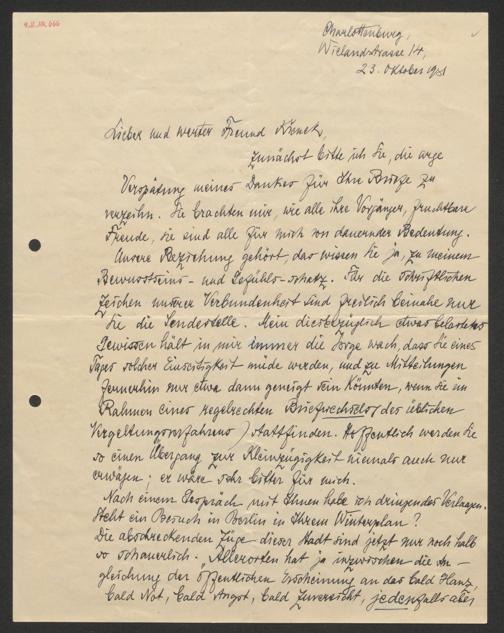 Charlottenburg,
Wielandstrasse 14,
23. Oktober 1931
Lieber und werter Freund Křenek,
zunächst bitte ich Sie, die arge
Verspätung meines Dankes für Ihre Briefe zu
verzeihn. Sie brachten mir, wie alle ihre Vorgänger, fruchtbare
Freude, sie sind alle für mich von dauernder Bedeutung.
Unsere Beziehung gehört, das wissen Sie ja, zu meinem
Bewusstseins- und Gefühls-schatz. Für die schriftlichen
Zeichen unserer Verbundenheit sind freilich beinahe nur
Sie die Sendestelle. Mein diesbezüglich etwas belastetes
Gewissen hält in mir immer die Sorge wach, dass Sie eines
Tages solcher Einseitigkeit müde werden, und zu Mitteilungen
fernerhin nur etwa dann geneigt sein könnten, wenn sie im
Rahmen eines regelrechten Briefwechsels (des üblichen
Vergeltungsverfahrens) stattfinden. Hoffentlich werden Sie
so einen Übergang zur Kleinzügigkeit niemals auch nur
erwägen; er wäre sehr bitter für mich.
Nach einem Gespräch mit Ihnen habe ich dringendes Verlangen.
Steht ein Besuch in Berlin in Ihrem Winterplan?
Die abschreckenden Züge dieser Stadt sind jetzt nur noch halb
so schauerlich. Allerorten hat ja inzwischen die An-
gleichung der öffentlichen Erscheinung an das bald Hanz,
bald Not, bald Angst, bald Zuversicht, jedenfalls aber